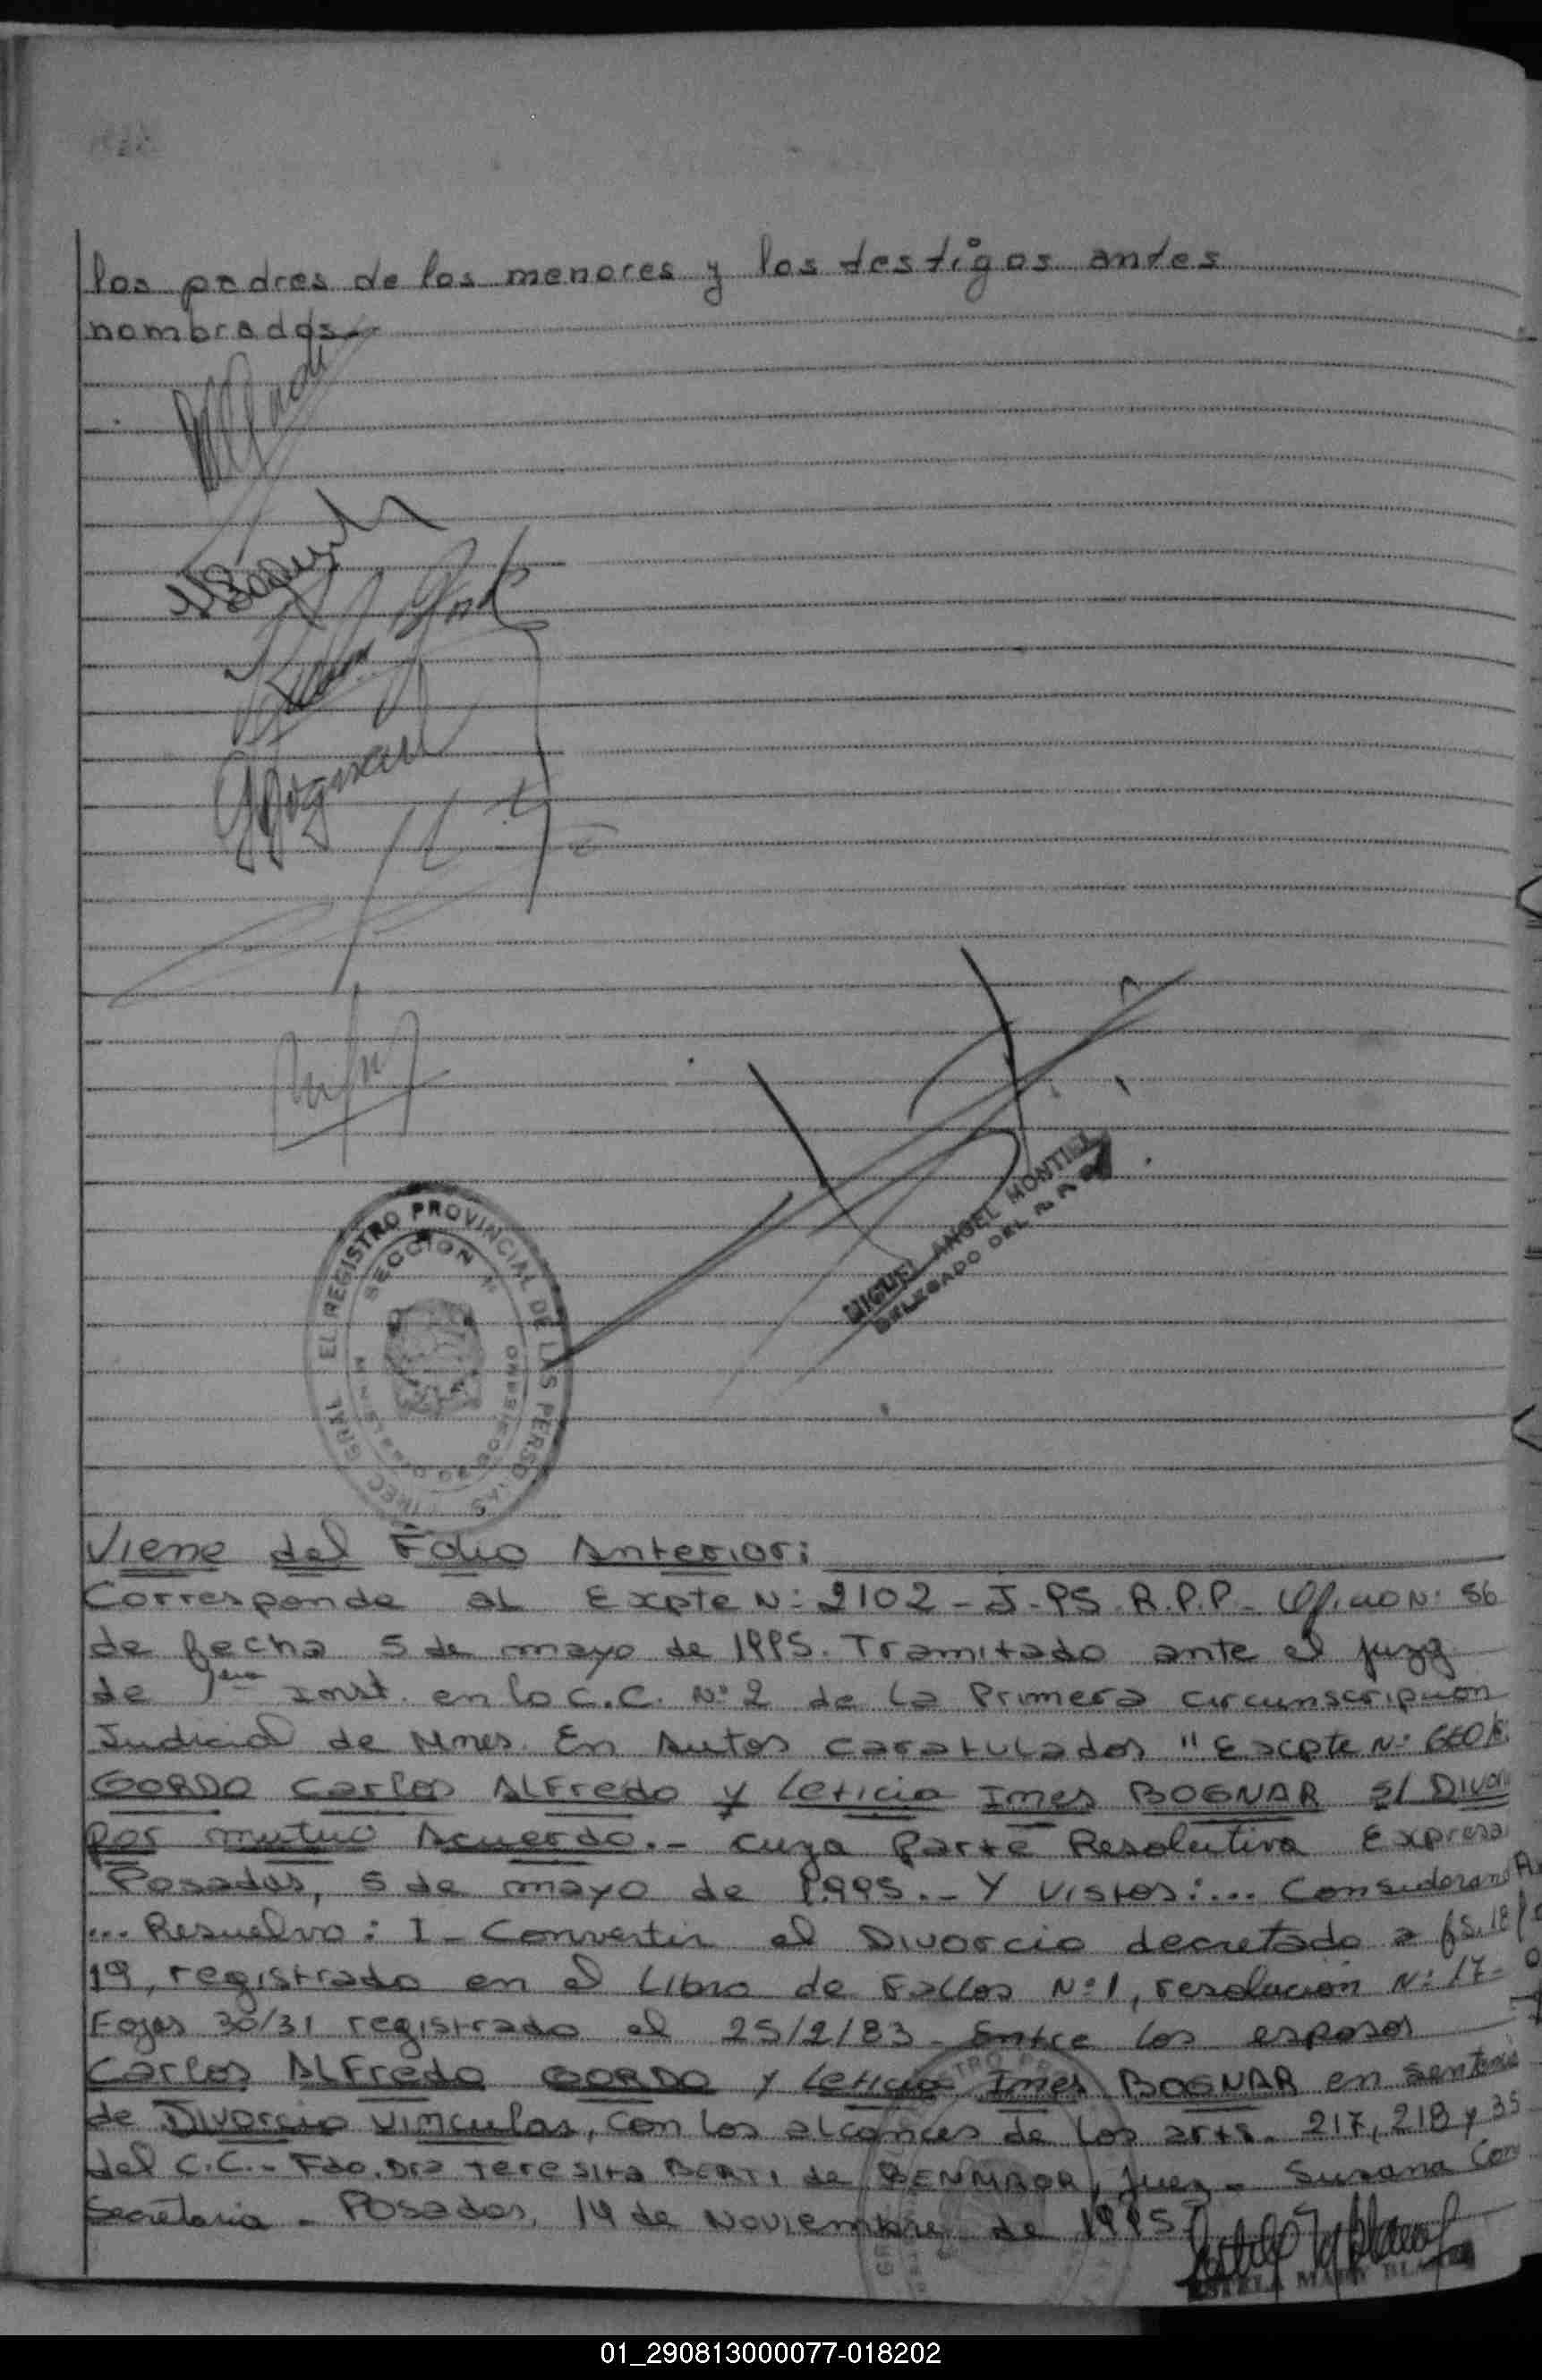 los padres de los menores y los testigos antes
nombrados.-
EL REGISTRO PROVINCIAL DE LAS PERSONAS
SECCION
DIREC GRAL
MIGUEL ANGEL MONTIEL
DELEGADO DEL
Viene del Folio Anterior:
Corresponde al Expte N: 2102 - J-PS. R.P.P. - Oficio N: 56
de fecha 5 de mayo de 1995. Tramitado ante el juzg
de 1era Inst. en lo C.C. Nº 2 de la Primera circunscripcion
Judicial de Mnes. En Autos caratulados "Expte Nº 660
GORDO Carlos Alfredo y Leticia Ines BOGNAR s/ Divor
por mutuo Acuerdo.- cuya Parte Resolutiva Expresa
Posadas, 5 de mayo de 1995.- Y Vistos:... Considerand
... Resuelvo: I - Convertir el Divorcio decretado a fs. 18/
19, registrado en el Libro de Fallos Nº 1, resolucion Nº 17-
Fojas 30/31 registrado el 25/2/83 - Entre los esposos
Carlos Alfredo GORDO y Leticia Ines BOGNAR en sentencia
de Divorcio Vincular, con los alcances de los arts. 217, 218 y 35
del C.C.- Fdo. Dra Teresita BERTI de BENMAOR, Juez - Susana
Secretaria - Posadas, 14 de Noviembre de 1995
ESTELA MARY
01_290813000077-018202